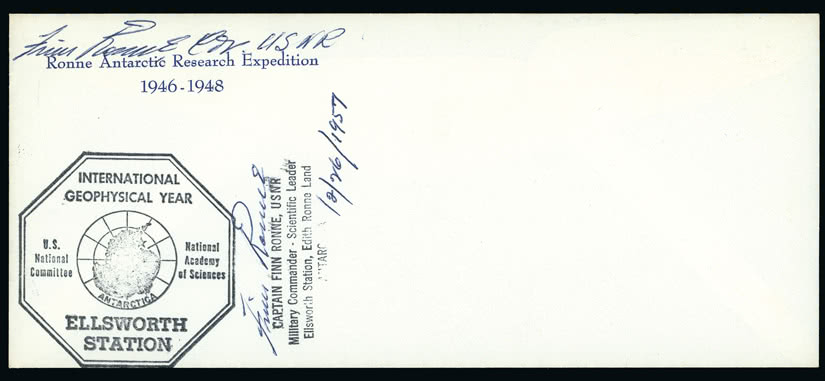 Finn Ronne Cdr. USNR
Ronne Antarctic Research Expedition
1946-1948
INTERNATIONAL
GEOPHYSICAL YEAR
U.S.
National
Committee
National
Academy
of Sciences
ANTARCTICA
ELLSWORTH
STATION
Finn Ronne
CAPTAIN FINN RONNE, USNR
Military Commander - Scientific Leader
Ellsworth Station, Edith Ronne Land
12/26/1957